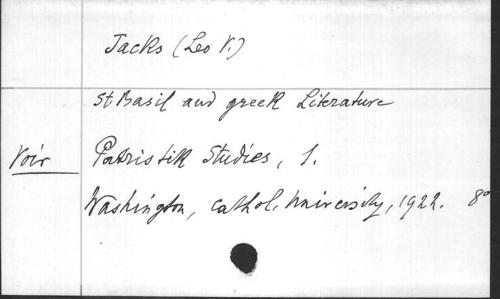 Jacks (Leo V.)
St Basil and greek Literature
Voir Patristik Studies, 1.
Washington, cathol. University, 1922. 8°